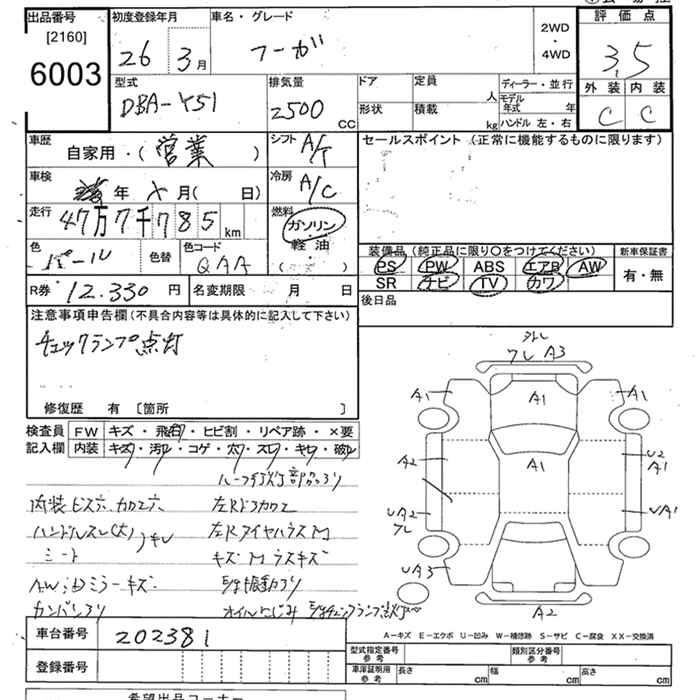 出品番号 初度登録年月 車名・グレード 2WD ・ 4WD 評価点
[2160] 6003 26 3月 フーガ 3.5
外装 内装
C C
型式 排気量 ドア 定員 人 ディーラー・並行
DBA-Y51 2500 CC 形状 積載 kg モデル年式 年
ハンドル 左・右
車歴 自家用・(営業) シフト A/T セールスポイント (正常に機能するものに限ります)
車検 年 月( 日) 冷房 A/C
走行 47万7千785km 燃料 ガソリン
軽油
・
( )
色 パール 色替 色コード QAA
装備品 (純正品に限り○をつけてください) 新車保証書
PS PW ABS エアB AW 有・無
SR ナビ TV カワ
R券 12.330円 名変期限 月 日 後日品
注意事項申告欄(不具合内容等は具体的に記入して下さい)
チェックランプ点灯
修復歴 有 〔箇所 〕
検査員 FW キズ・飛石・ヒビ割・リペア跡・×要
記入欄 内装 キズ・汚れ・コゲ・穴・スレ・キレ・破れ
内装ビス穴 カワ穴 左Rドアカワエ
ハンドルスレ(大) キレ 左RタイヤハウスM
シート キズM ラスキズ
AW,ミラーキズ
カンバンアリ オイルにじみ
外レ
フレ A3
A1 A1 A1
A2 A1 U2
A1
UA2 UA1
フレ
UA3
A2
車台番号 202381
A-キズ E-エクボ U-凹み W-補修跡 S-サビ C-腐食 XX-交換済
登録番号 型式指定番号 参考 類別区分番号 参考
車庫証明用 参考 長さ cm 幅 cm 高さ cm
希望出品コーナー